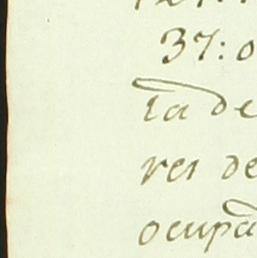 37:0
ta de
res de
ocupa